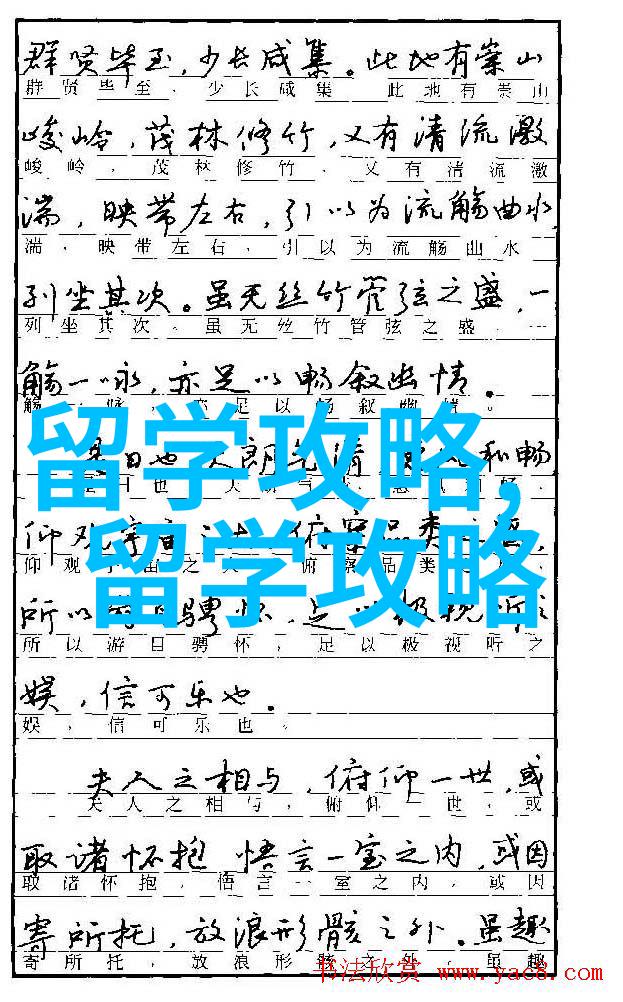 群贤毕至,少长咸集。此地有崇山
群贤毕至，少长咸集。此地有崇山
峻岭,茂林修竹,又有清流激
峻岭，茂林修竹，又有清流激
湍,映带左右,引以为流觞曲水,
湍，映带左右，引以为流觞曲水
列坐其次。虽无丝竹管弦之盛,一
列坐其次。虽无丝竹管弦之盛，一
觞一咏,亦足以畅叙幽情。
觞一咏，亦足以畅叙幽情。
留学攻略,
是日也 朗气清 和畅
仰观宇宙之大 俯察品类之盛,
仰观宇宙之大 俯察品类之
留学攻略
所以游目骋怀,足以极视听之
所以游目骋怀，足以极视听之
娱,信可乐也。
娱，信可乐也。
夫人之相与,俯仰一世,或
夫人之相与，俯仰一世，或
取诸怀抱 悟言一室之内,或因
取诸怀抱，悟言一室之内，或因
寄所托,放浪形骸之外。虽趣
寄所托，放浪形骸之外。虽趣
书法欣赏 www.yac8.com